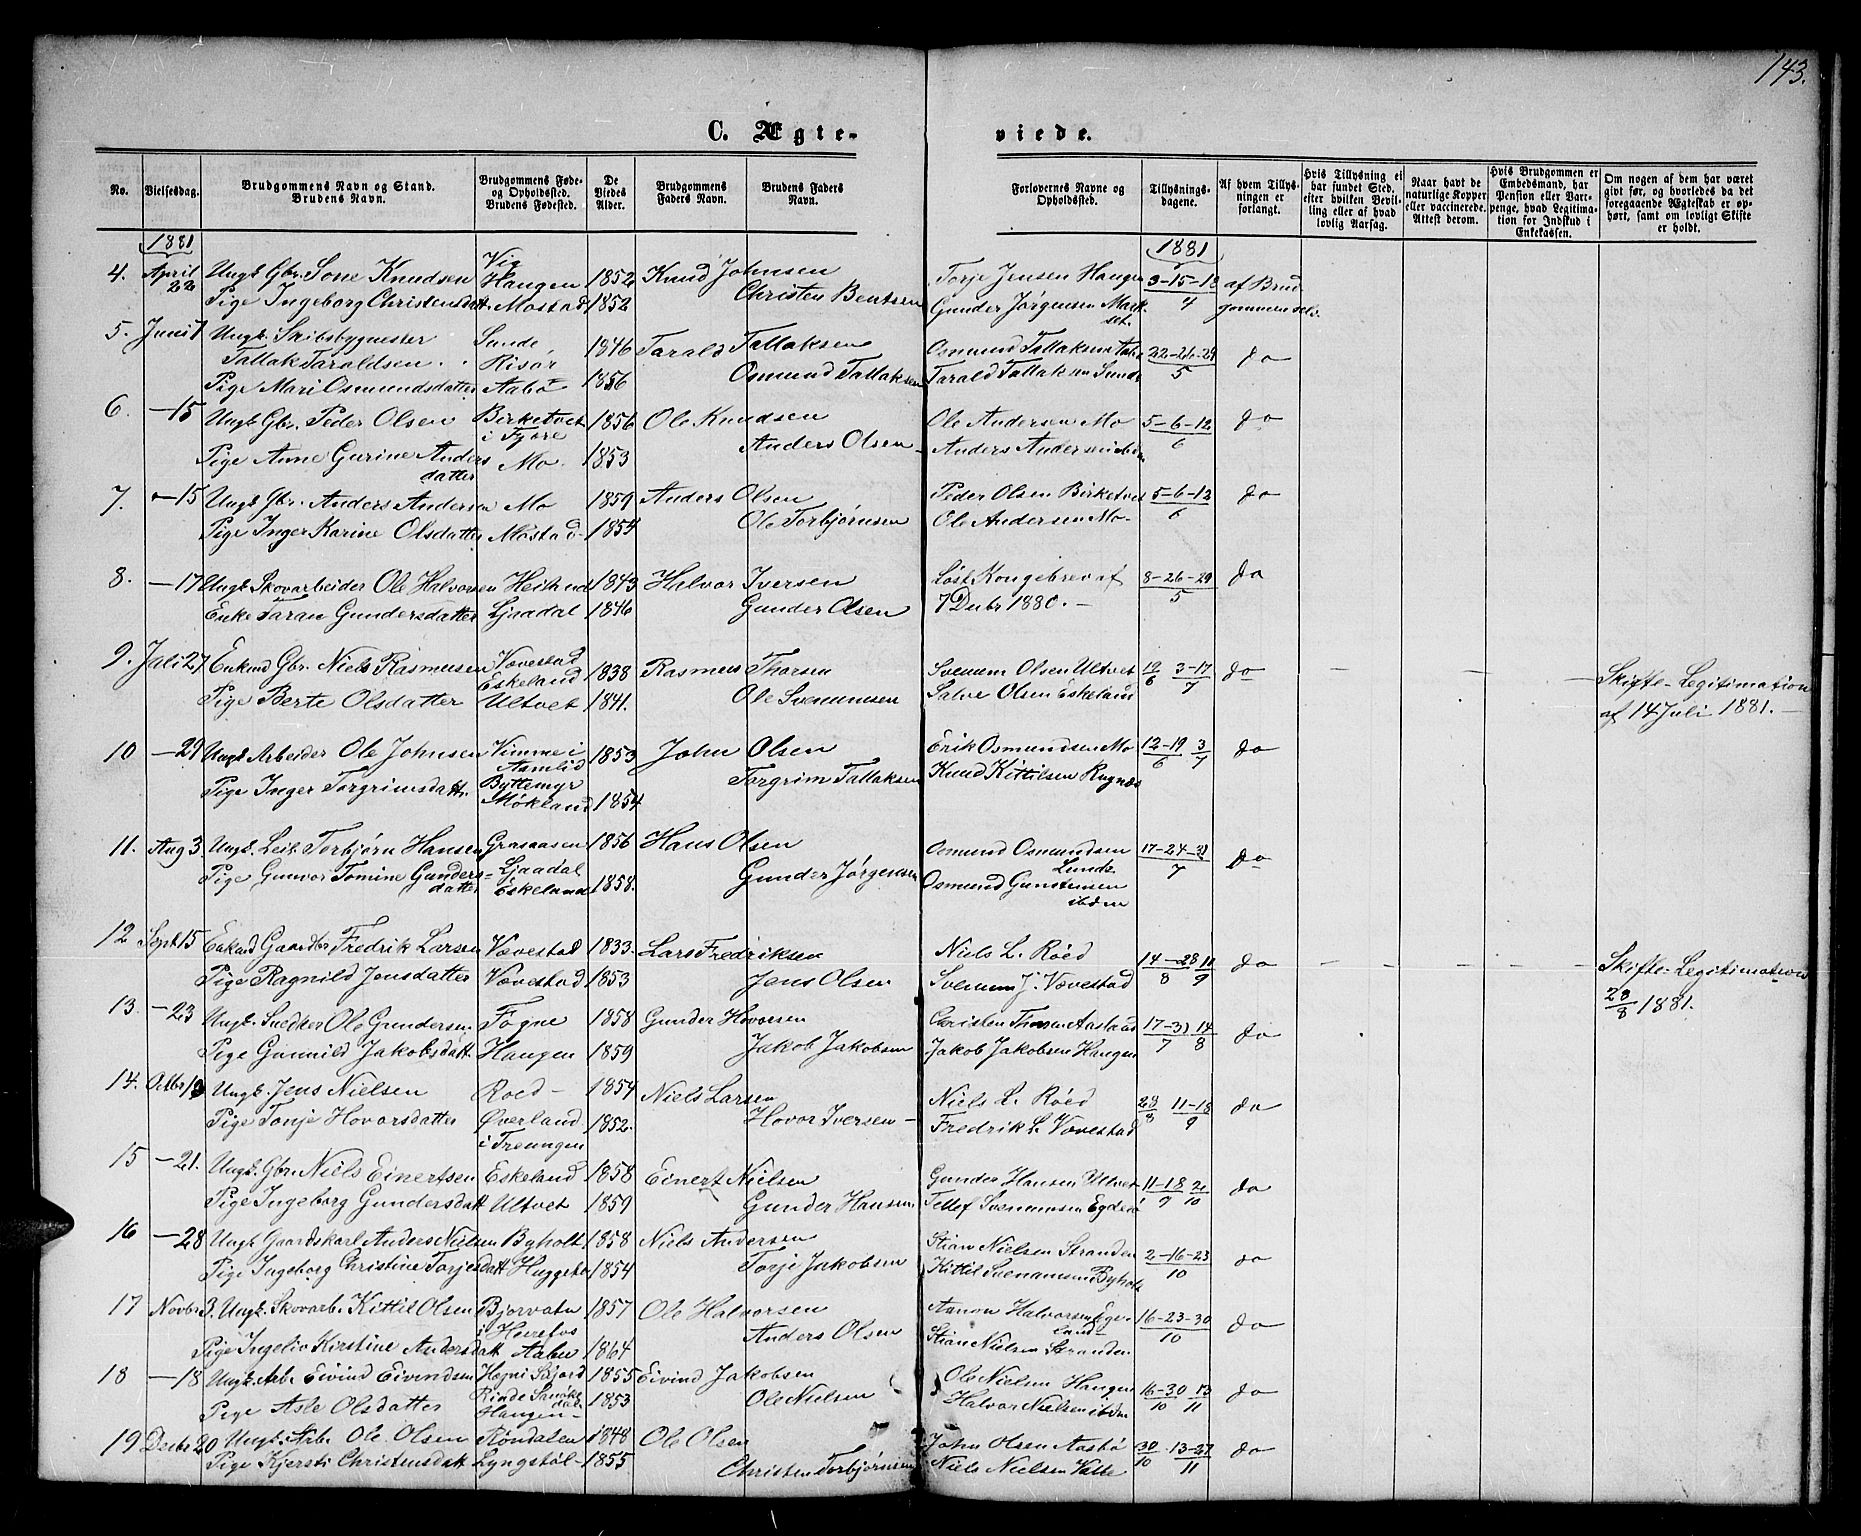 143.
C. Ægte- viede.
No. Vielsesdag. Brudgommens Navn og Stand. Brudens Navn. Brudgommens Føde- og Opholdssted. Brudens Fødested. De Viedes Alder. Brudgommens Faders Navn. Brudens Faders Navn. Forlovernes Navne og Opholdssted. Tillysnings-dagene. Af hvem Tillys-ningen er forlangt. Hvis Tillysning ei har fundet Sted, efter hvilken Bevil-ling eller af hvad lovlig Aarsag. Naar havt de naturlige Kopper eller vaccinerede. Attest derom. Hvis Brudgommen er Embedsmand, har Pension eller Vart-penge, hvad Legitima-tion for Indskud i Enkekassen. Om nogen af dem har været givt før, og hvorledes da det foregaaende Ægteskab er op-hørt, samt om lovligt Skifte er holdt.
1881 1881
4. April 22 Ungk. Gbr. Sone Knudsen Vig Haugen 1852 Knud Johnsen Torje Jensen Haugen 3-15-18/4 af Brud
Pige Ingeborg Christensdatt. Mostad 1852 Christen Bentsen Gunder Jørgensen gommen selv.
5. Juni 1 Ungk. Skibsbygmester Sunde, 1846 Tarald Tallaksen Osmund Tallaksen Aabø 22-26-29/5 do
Tallak Taraldsen. Risør
Pige Mari Osmundsdatter Aabø 1856 Osmund Tallaksen Tarald Tallaksen Sunde
6. -15 Ungk. Gbr. Peder Olsen Birketvet i Fjøre 1856 Ole Knudsen Ole Andersen Mo 5-6-12/6 do
Pige Anne Gurine Andersdatter Mo. 1853 Anders Olsen Anders Andersen ibdm
7. -15 Ungk. Gbr. Anders Andersen Mo 1859 Anders Olsen Peder Olsen Birketvet 5-6-12/6 do
Pige Inger Karine Olsdatter Mostad 1854 Ole Torbjørnsen Ole Andersen Mo-
8. -17 Ungk. Skovarbeider Ole Halvorsen 1843 Halvor Iversen Løst Kongebrev af 8-26-29/5 do
Enke Taran Gundersdatter Ljaadal 1846 Gunder Olsen 7 Decbr 1880.-
9. Juli 27 Enkmd Gbr. Niels Rasmusen Vævestad Eskeland 1838 Rasmus Thorsen Svenum Olsen Ultvet 19/6 3-17/7 do - - - Skifte-Legitimation
Pige Berte Olsdatter Ultvet 1841. Ole Svenumsen Salve Olsen Eskeland af 14 Juli 1881.-
10 -29 Ungk. Arbeider Ole Johnsen Vimme i Aamlid 1853 John Olsen Erik Osmundsen Mo 12-19/6 3/7 do
Pige Inger Torgrimsdatt. Byttemyr Mökland 1854 Torgrim Tallaksen Knud Kittilsen Rugnæs
11. Aug 3. Ungk. Leil. Torbjørn Hansen Graaaasen 1856 Hans Olsen Osmund Osmundsen Lunde 17-24-31/7 do
Pige Gunvor Tomine Gundersdatter Ljaadal Eskeland 1858. Gunder Jørgensen Osmund Gunstensen ibdm
12 Sept 15 Enkmd Gaardbr Fredrik Larsen Vævestad 1833. Lars Fredriksen Niels L. Røed 14-28/8 11/9 do - - - Skifte-Legitimation
Pige Ragnild Jensdatter Vævestad 1853 Jens Olsen Svenum J. Vævestad 28/8 1881.
13. -23 Ungk. Snedker Ole Gundersen. Fogne 1858 Gunder Hovorsen Christen Thorsen Aasland 17-31/7 14/8 do
Pige Gunnild Jakobsdatt. Haugen 1859 Jakob Jakobsen Jakob Jakobsen Haugen
14. Octbr Ungk. Jens Nielsen Roed- 1854 Niels Larsen Niels L. Røed 28/8 11-18/9 do
Pige Tonje Hovorsdatter Øverland i Treungen 1852. Hovor Iversen- Fredrik L. Vævestad
15 -21. Ungk. Gbr. Niels Einertsen Eskeland 1858 Einert Nielsen Gunder Hansen Ultvet 11-18/9 2/10 do
Pige Ingeborg Gundersdatt Ultvet 1859 Gunder Hansen Tellef Svenumsen
16 -28 Ungk. Gaardskarl Anders Nielsen Byholt 1858 Niels Andersen Stian Nielsen Stranden 2-16-23/10 do
Pige Ingeborg Christine Torjesdatt 1854 Torje Jakobsen Kittil Svenumsen Byholt
17 Novbr 3. Ungk. Skovarb. Kittil Olsen Bjorvatn i Herefos 1857 Ole Halvorsen Aanon Halvorsen Egeland 16-23-30/10 do
Pige Ingeliv Kirstine Andersdatt 1864 Anders Olsen Stian Nielsen Stranden
18 -18 Ungk. Arb. Eivind Eivindsen 1855 Eivind Jakobsen Ole Nielsen Haugen 16-30/10 13/11 do
Pige Asle Olsdatter Haugen- 1853 Ole Nielsen Halvor Nielsen ibdm
19 Decbr 20 Ungk. Arb. Ole Olsen Røndalen 1848 Ole Olsen John Olsen Aasbø 30/10 13-27/11 do
Pige Kjersti Christensdatt Lyngstøl- 1855 Christen Torbjørnsen Niels Nielsen Valte